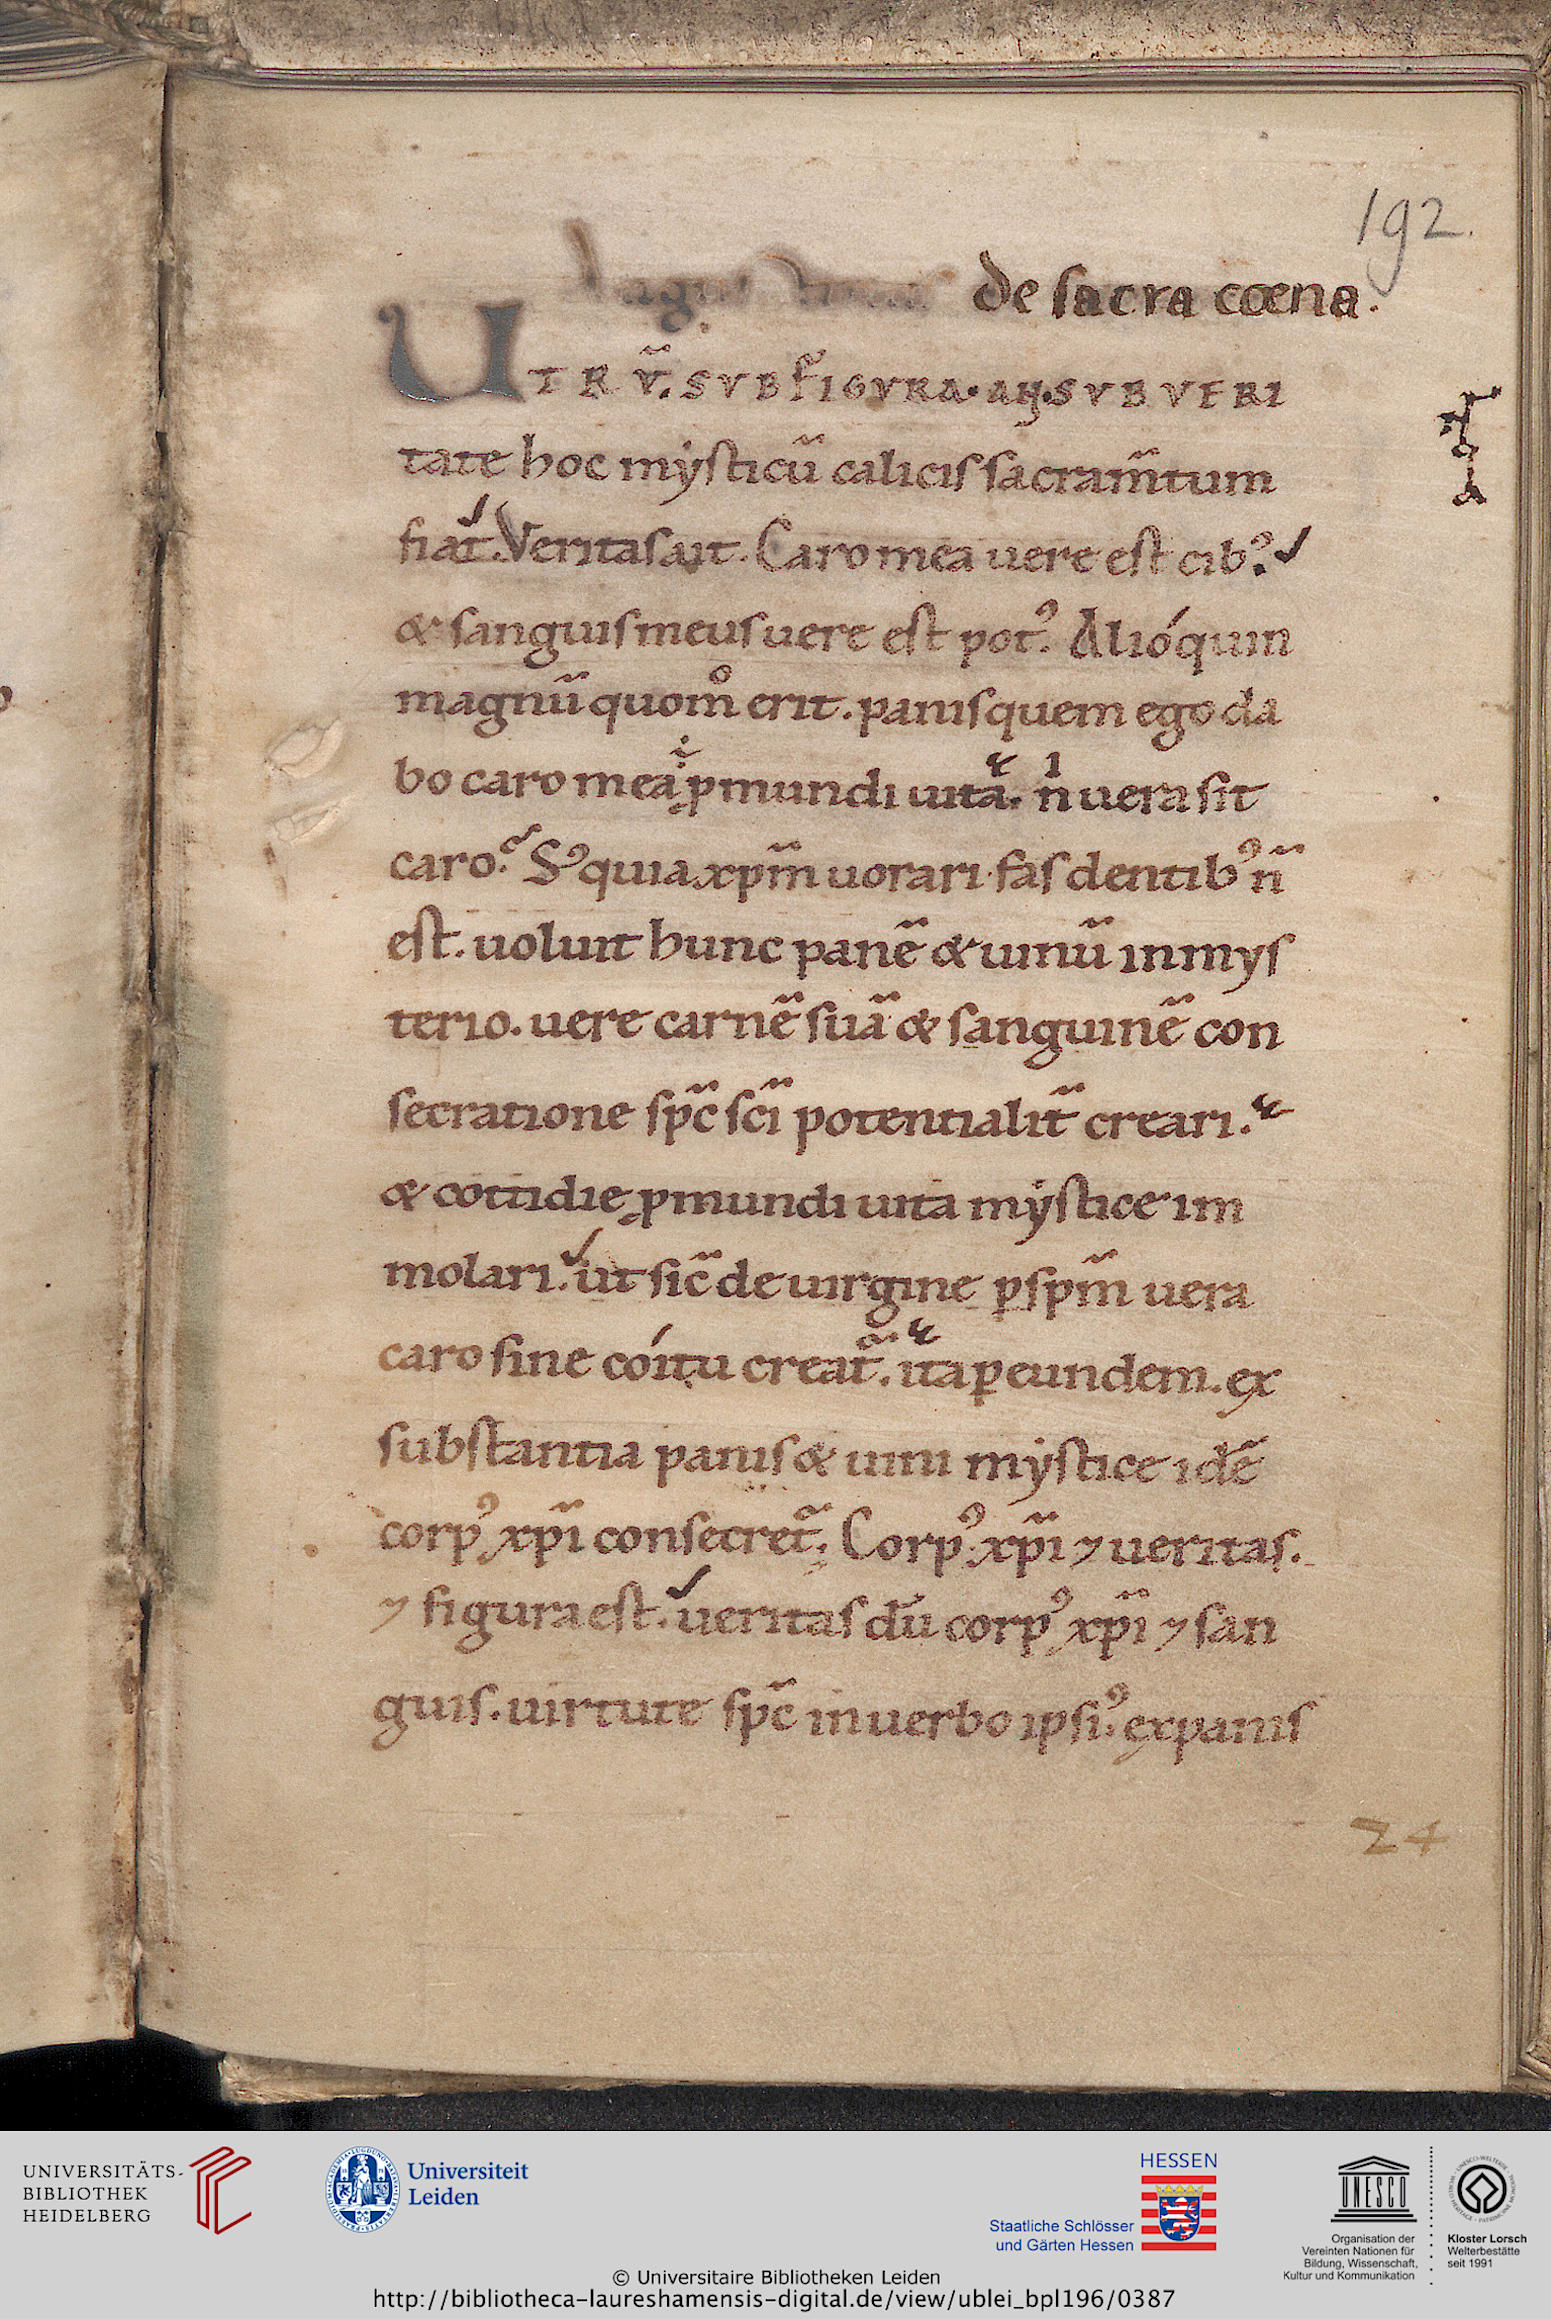 192.
de sacra cœna.
UTRV̄. SVB FIGVRA. AN. SVB VERI
tate hoc mẏsticū calicis sacram̄tum
fiat᷑. Veritas ait. Caro mea uere est cibꝰ.
& sanguis meus uere est potꝰ. Alióquin
magnū quom̊ erit. panis quem ego da
bo caro mea ꝓ mundi uitā. n̄ uera sit
caro? Sꝫ quia xp̄m uorari fas dentibꝰ n̄
est. uoluit hunc panē & uinū in mys
terio. uere carnē suā & sanguinē con
secratione sp̄c sc̄i potentialit̄ creari.
& cottidie ꝓ mundi uita mẏstice im
molari. ut sic̄ de uirgine ꝑ sp̄m uera
caro sine cóitu creat᷑. ita ꝑ eundem. ex
substantia panis & uini mẏstice idē
corpꝰ xp̄i consecret᷑; Corpꝰ xp̄i ⁊ ueritas.
⁊ figura est. ueritas dū corpꝰ xp̄i ⁊ san
guis. uirtute sp̄c in uerbo ipsiꝰ. ex panis
24
UNIVERSITÄTS-
BIBLIOTHEK
HEIDELBERG
Universiteit
Leiden
HESSEN
Staatliche Schlösser
und Gärten Hessen
UNESCO
Organisation der
Vereinten Nationen für
Bildung, Wissenschaft,
Kultur und Kommunikation
Kloster Lorsch
Welterbestätte
seit 1991
© Universitaire Bibliotheken Leiden
http://bibliotheca-laureshamensis-digital.de/view/ublei_bpl196/0387